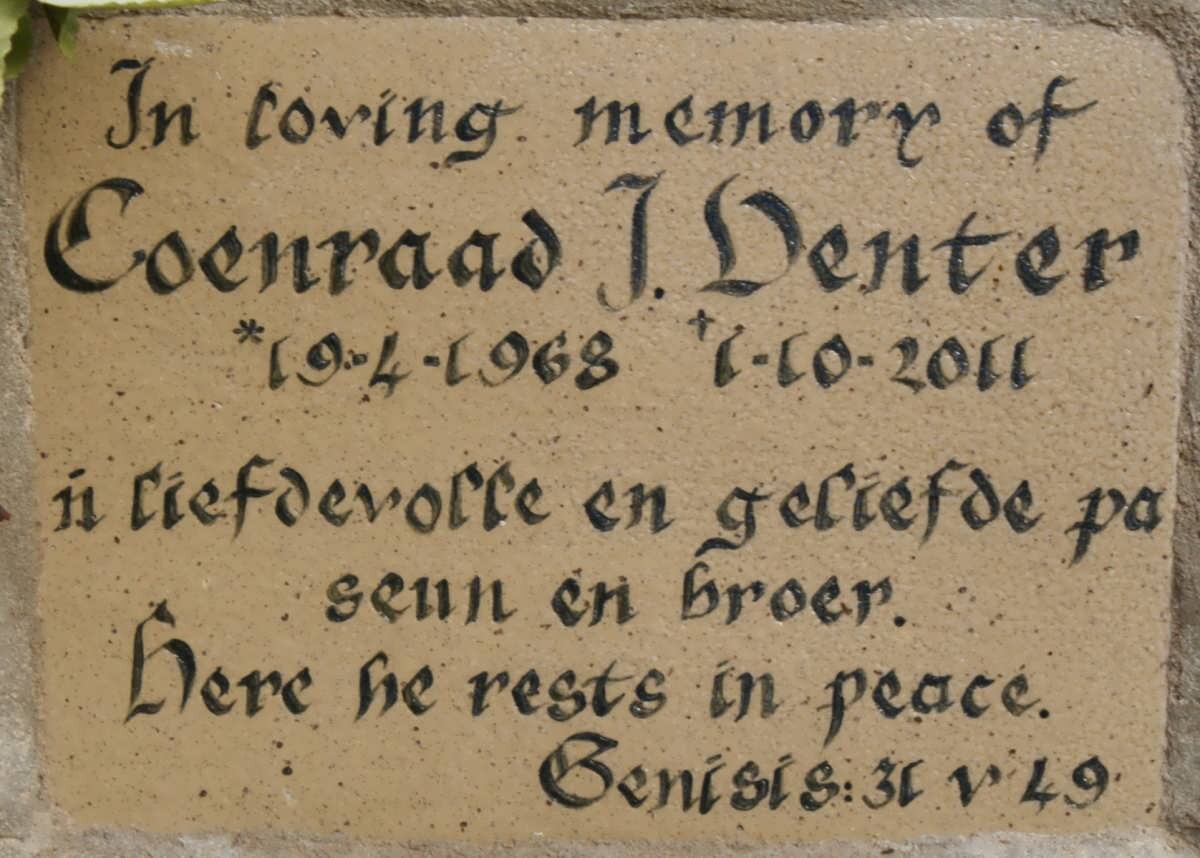 In loving memory of
Coenraad J. Venter
*19-4-1968 †1-10-2011
'n liefdevolle en geliefde pa
seun en broer.
Here he rests in peace.
Genisis: 31 v 49